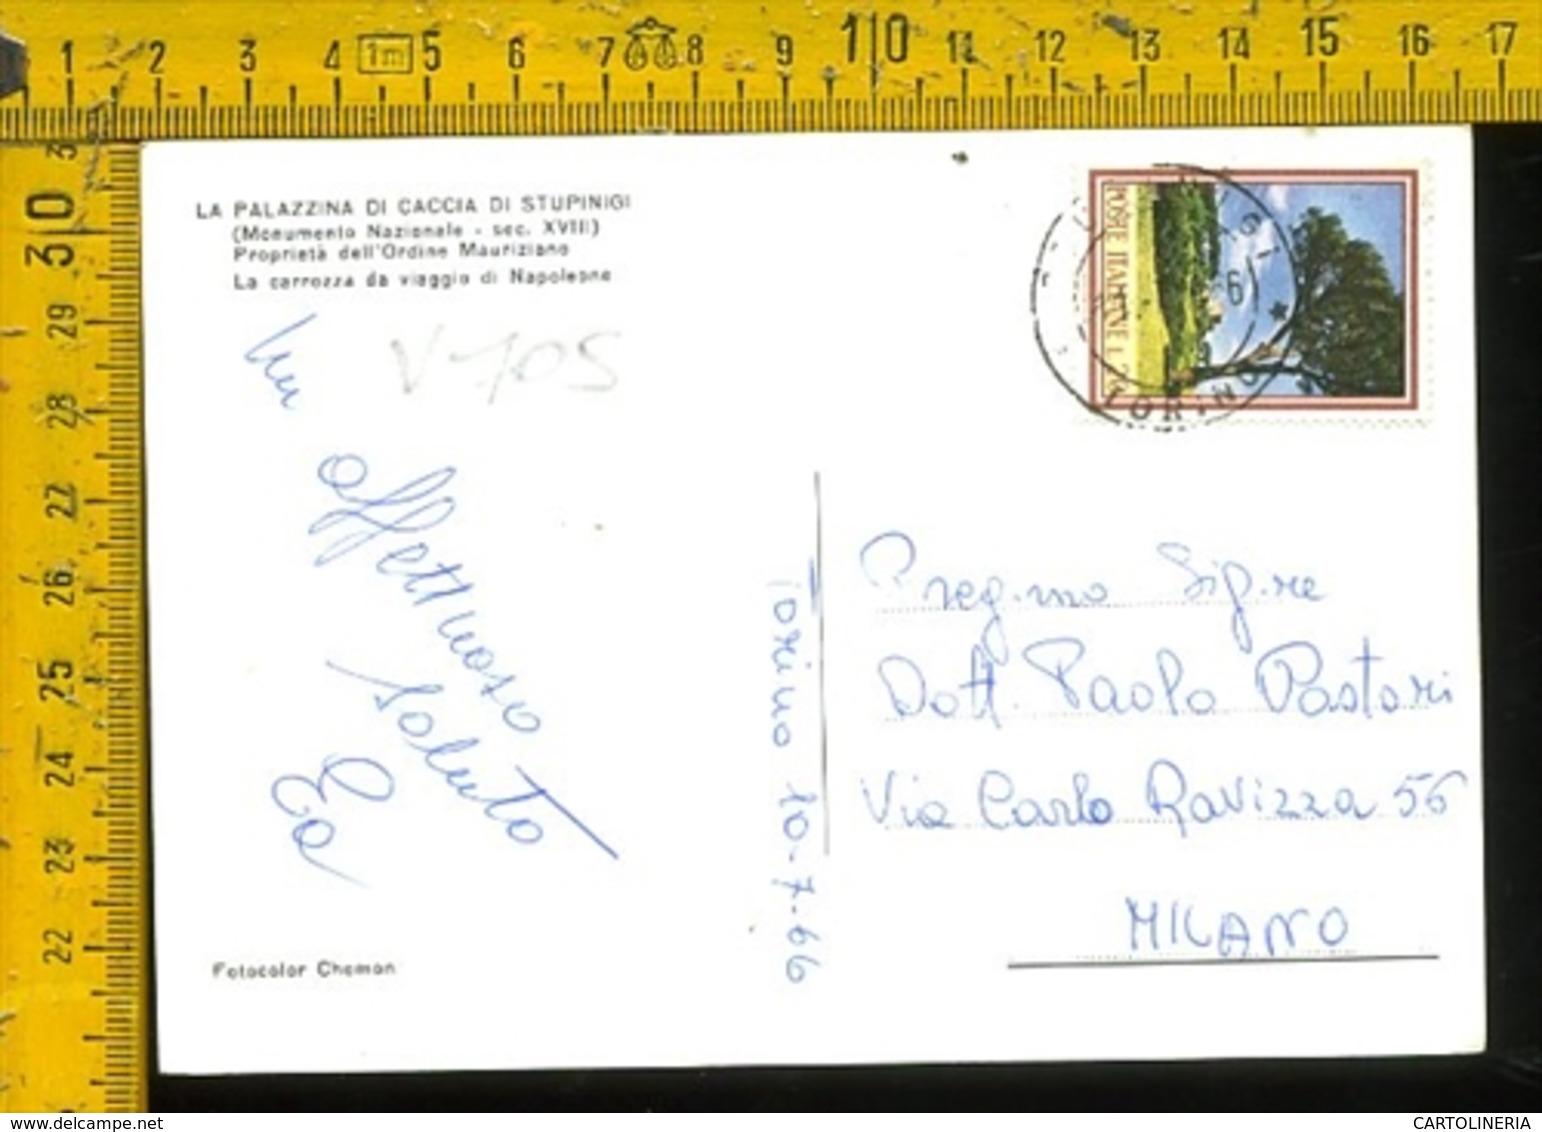 1 2 3 4 1m 5 6 7 8 9 10 11 12 13 14 15 16 17
30
29
28
27
26
25
24
23
22
LA PALAZZINA DI CACCIA DI STUPINIGI
(Monumento Nazionale - sec. XVIII)
Proprietà dell'Ordine Mauriziano
La carrozza da viaggio di Napoleone
V 705
Un
affettuoso
saluto
Fotocolor Cheman
Torino 10-7-66
POSTE ITALIANE L.
TORINO
Preg.mo Sig.re
Dott. Paolo Pastori
Via Carlo Ravizza 56
MILANO
CARTOLINERIA